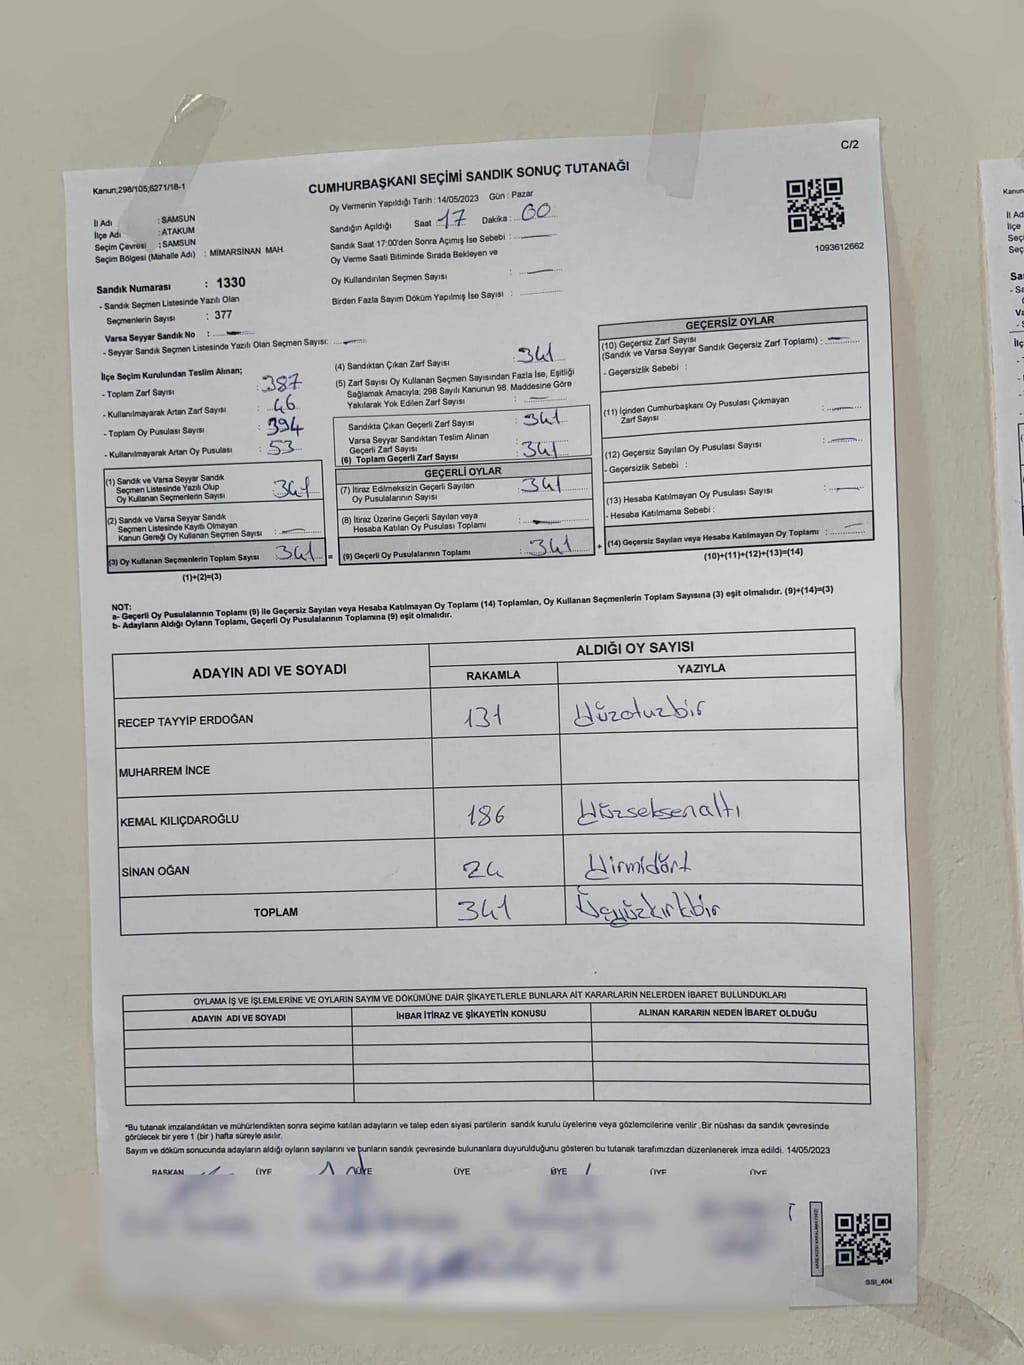 C/2
Kanun;298/105;6271/18-1
CUMHURBAŞKANI SEÇİMİ SANDIK SONUÇ TUTANAĞI
Oy Vermenin Yapıldığı Tarih : 14/05/2023 Gün : Pazar
İl Adı : SAMSUN
İlçe Adı : ATAKUM
Seçim Çevresi : SAMSUN
Seçim Bölgesi (Mahalle Adı) : MİMARSİNAN MAH.
Sandığın Açıldığı Saat 17 Dakika : 00
Sandık Saat 17:00'den Sonra Açılmış İse Sebebi :
Oy Verme Saati Bitiminde Sırada Bekleyen ve
Oy Kullandırılan Seçmen Sayısı :
Birden Fazla Sayım Döküm Yapılmış İse Sayısı :
1093612662
Sandık Numarası : 1330
- Sandık Seçmen Listesinde Yazılı Olan
Seçmenlerin Sayısı : 377
Varsa Seyyar Sandık No :
- Seyyar Sandık Seçmen Listesinde Yazılı Olan Seçmen Sayısı:
İlçe Seçim Kurulundan Teslim Alınan;
- Toplam Zarf Sayısı : 387
- Kullanılmayarak Artan Zarf Sayısı : 46
- Toplam Oy Pusulası Sayısı : 394
- Kullanılmayarak Artan Oy Pusulası : 53
(1) Sandık ve Varsa Seyyar Sandık
Seçmen Listesinde Yazılı Olup
Oy Kullanan Seçmenlerin Sayısı : 341
(2) Sandık ve Varsa Seyyar Sandık
Seçmen Listesinde Kayıtlı Olmayan
Kanun Gereği Oy Kullanan Seçmen Sayısı :
(3) Oy Kullanan Seçmenlerin Toplam Sayısı : 341
(1)+(2)=(3)
(4) Sandıktan Çıkan Zarf Sayısı : 341
(5) Zarf Sayısı Oy Kullanan Seçmen Sayısından Fazla İse, Eşitliği
Sağlamak Amacıyla; 298 Sayılı Kanunun 98. Maddesine Göre
Yakılarak Yok Edilen Zarf Sayısı :
Sandıkta Çıkan Geçerli Zarf Sayısı : 341
Varsa Seyyar Sandıktan Teslim Alınan
Geçerli Zarf Sayısı
(6) Toplam Geçerli Zarf Sayısı : 341
GEÇERLİ OYLAR
(7) İtiraz Edilmeksizin Geçerli Sayılan
Oy Pusulalarının Sayısı : 341
(8) İtiraz Üzerine Geçerli Sayılan veya
Hesaba Katılan Oy Pusulası Toplamı :
= (9) Geçerli Oy Pusulalarının Toplamı : 341
GEÇERSİZ OYLAR
(10) Geçersiz Zarf Sayısı
(Sandık ve Varsa Seyyar Sandık Geçersiz Zarf Toplamı) :
- Geçersizlik Sebebi :
(11) İçinden Cumhurbaşkanı Oy Pusulası Çıkmayan
Zarf Sayısı :
(12) Geçersiz Sayılan Oy Pusulası Sayısı :
- Geçersizlik Sebebi :
(13) Hesaba Katılmayan Oy Pusulası Sayısı :
- Hesaba Katılmama Sebebi :
+ (14) Geçersiz Sayılan veya Hesaba Katılmayan Oy Toplamı :
(10)+(11)+(12)+(13)=(14)
NOT:
a- Geçerli Oy Pusulalarının Toplamı (9) ile Geçersiz Sayılan veya Hesaba Katılmayan Oy Toplamı (14) Toplamları, Oy Kullanan Seçmenlerin Toplam Sayısına (3) eşit olmalıdır. (9)+(14)=(3)
b- Adayların Aldığı Oyların Toplamı, Geçerli Oy Pusulalarının Toplamına (9) eşit olmalıdır.
ADAYIN ADI VE SOYADI
ALDIĞI OY SAYISI
RAKAMLA YAZIYLA
RECEP TAYYİP ERDOĞAN 131 Yüzotuzbir
MUHARREM İNCE
KEMAL KILIÇDAROĞLU 186 Yüzseksenaltı
SİNAN OĞAN 24 Yirmidört
TOPLAM 341 Üçyüzkırkbir
OYLAMA İŞ VE İŞLEMLERİNE VE OYLARIN SAYIM VE DÖKÜMÜNE DAİR ŞİKAYETLERLE BUNLARA AİT KARARLARIN NELERDEN İBARET BULUNDUKLARI
ADAYIN ADI VE SOYADI İHBAR İTİRAZ VE ŞİKAYETİN KONUSU ALINAN KARARIN NEDEN İBARET OLDUĞU
*Bu tutanak imzalandıktan ve mühürlendikten sonra seçime katılan adayların ve talep eden siyasi partilerin sandık kurulu üyelerine veya gözlemcilerine verilir .Bir nüshası da sandık çevresinde
görülecek bir yere 1 (bir ) hafta süreyle asılır.
Sayım ve döküm sonucunda adayların aldığı oyların sayılarını ve bunların sandık çevresinde bulunanlara duyurulduğunu gösteren bu tutanak tarafımızdan düzenlenerek imza edildi. 14/05/2023
BAŞKAN ÜYE ÜYE ÜYE ÜYE ÜYE ÜYE
SSI_404